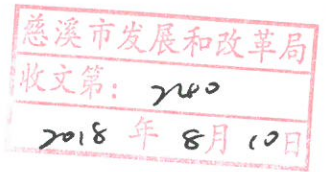 慈溪市发展和改革局
收文第：2240
2018年8月10日